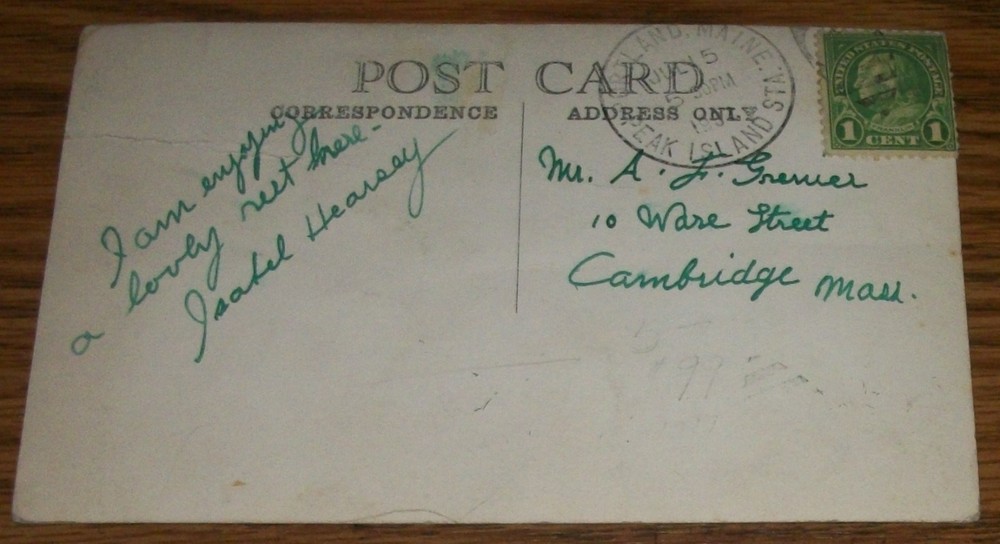 POST CARD
CORRESPONDENCE
ADDRESS ONLY
PORTLAND, MAINE.
5
PM
PEAK ISLAND STA.
UNITED STATES POSTAGE
FRANKLIN
1 CENT 1
I am enjoying
a lovely rest here-
Isabel Hearsey
Mr. A. F. Gremer
10 Ware Street
Cambridge Mass.